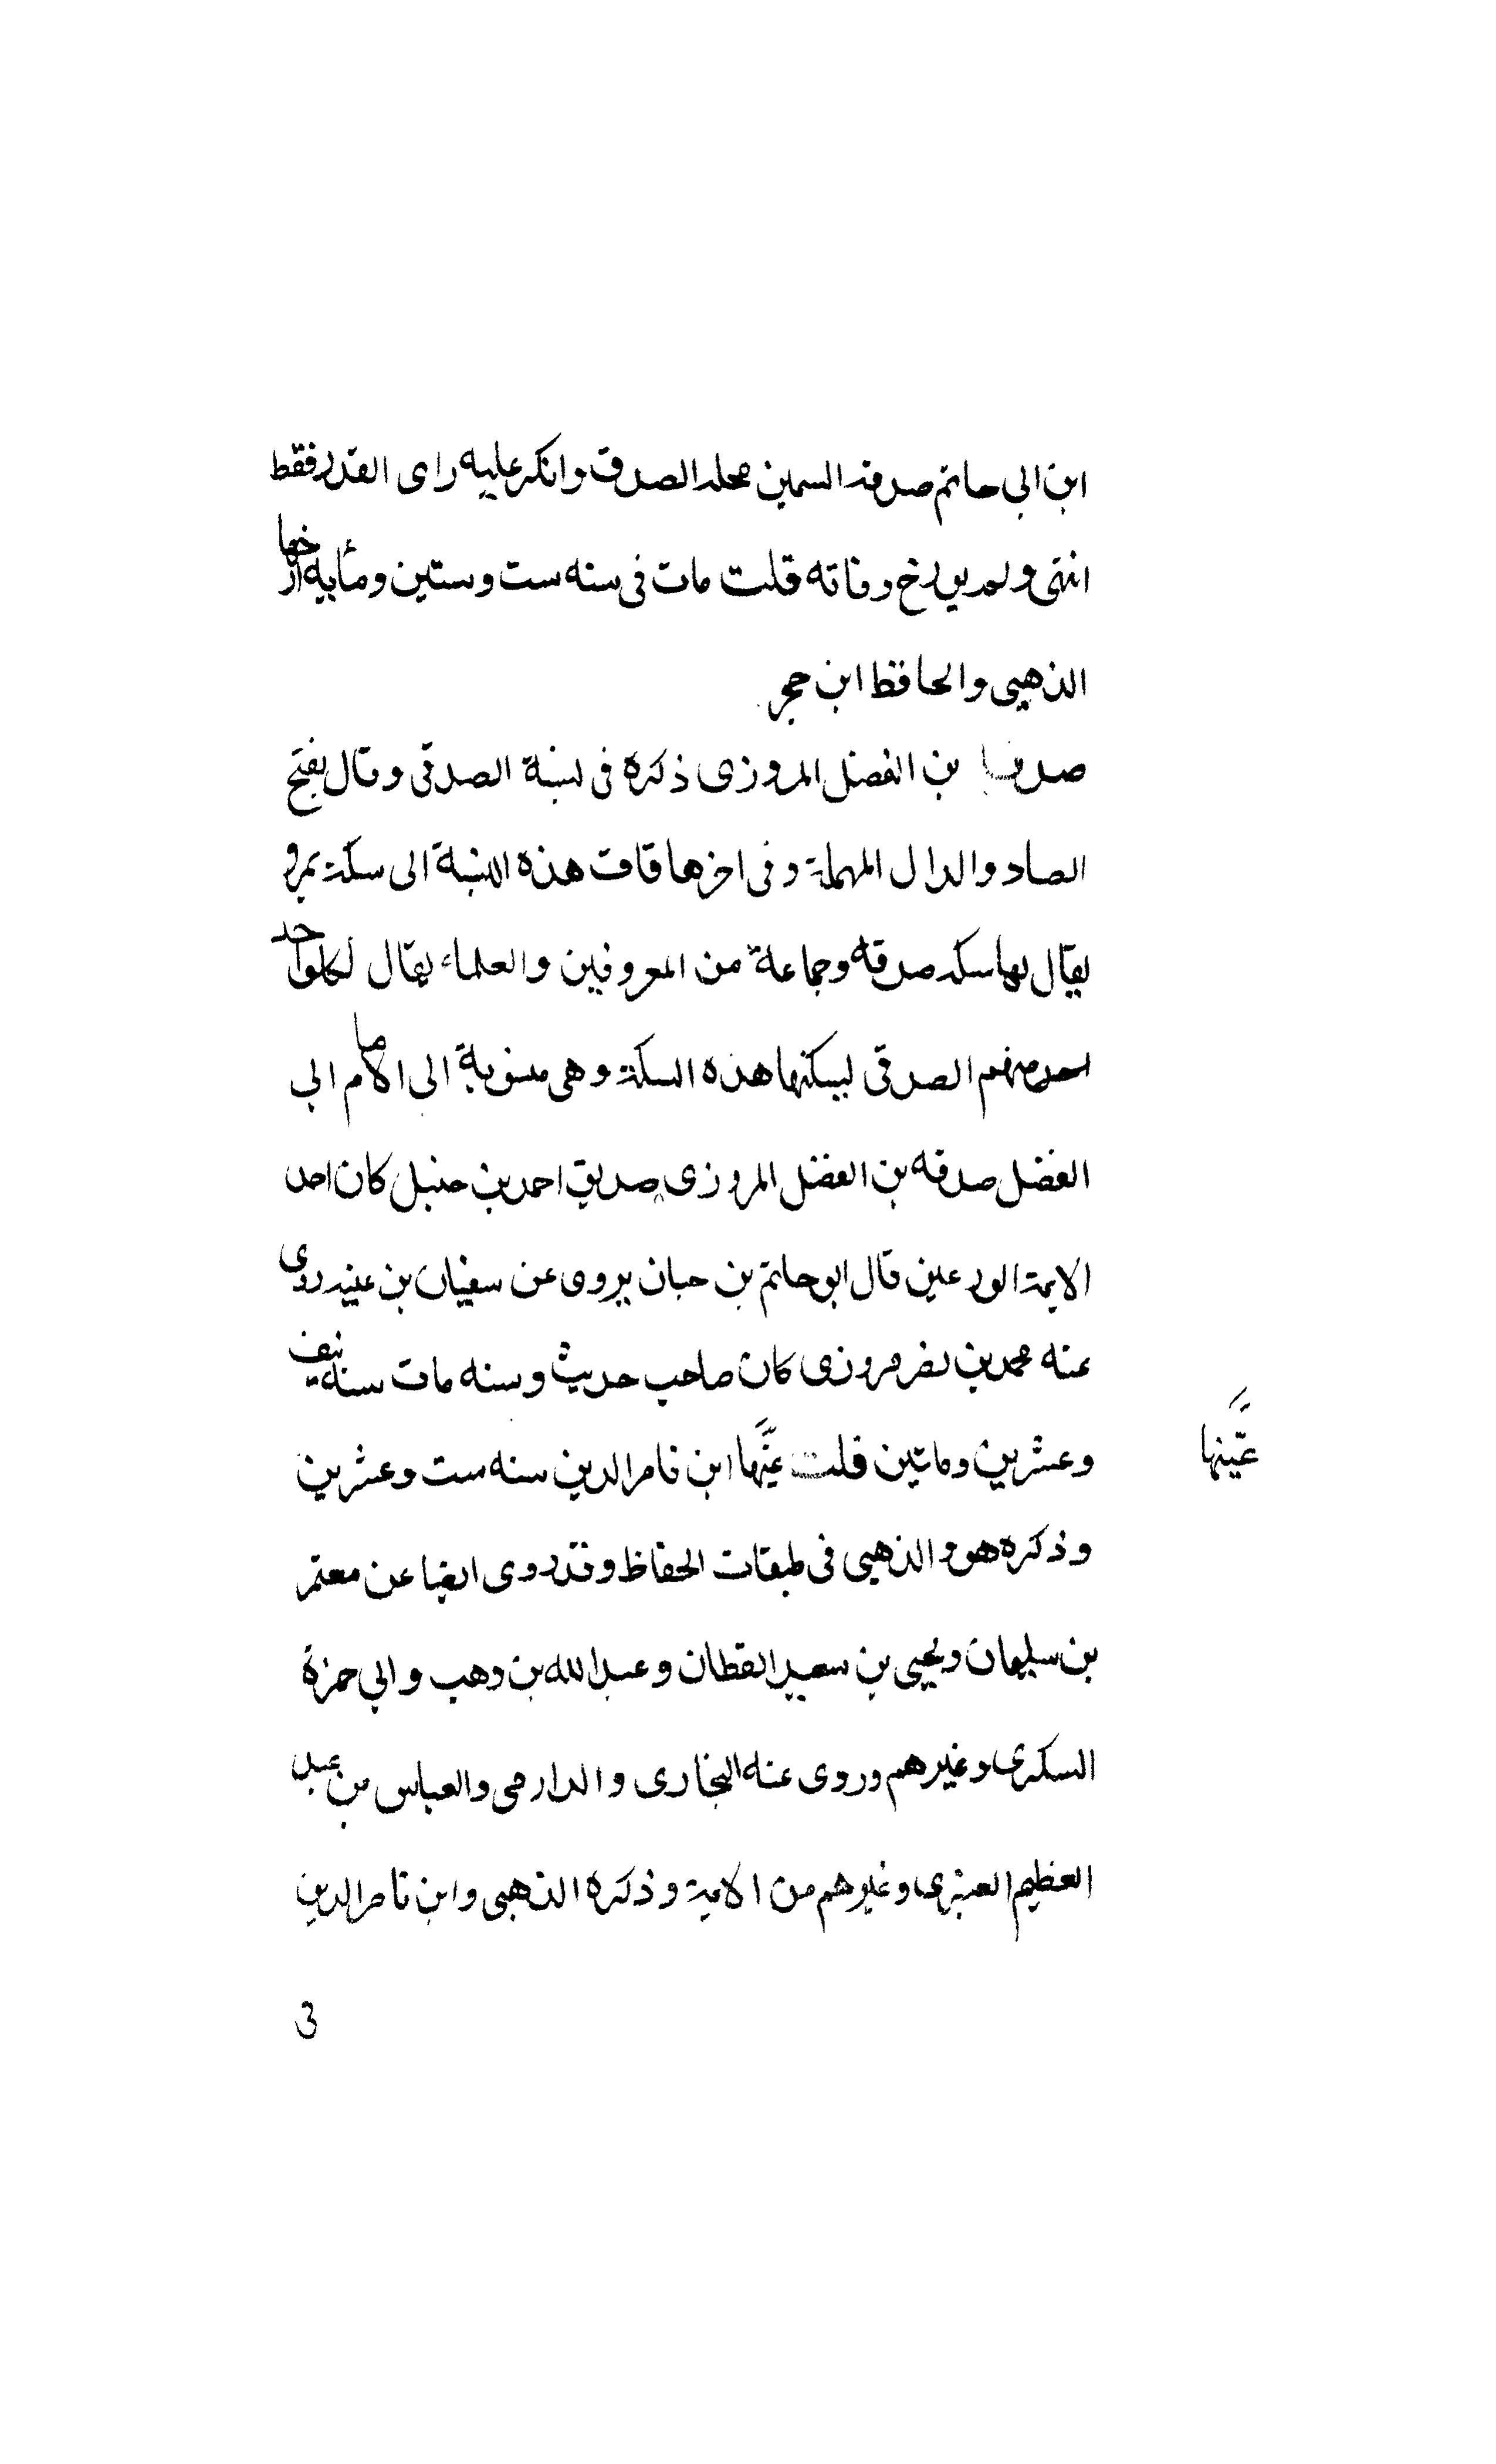 ابن ابي حاتم صدقه السمين محله الصدق وانكر عليه راى القدر فقط
انتهى ولم يورخ وفاته قلت مات فى سنه ست وستين ومأيه ارخها
الذهبي والحافظ ابن حجر
صدقه بن الفضل المروزى ذكره فى نسبة الصدقى وقال بفتح
الصاد والدال المهملة وفى اخرها قاف هذه النسبة الى سكة بمرو
يقال لها سكه صدقه وجماعة من المعروفين والعلماء يقال لكل واحد
احد منهم الصدقى لسكنها هذه السكة وهى منسوبة الى الامام ابي
الفضل صدقه بن الفضل المروزى صديق احمد بن حنبل كان احد
الايمة الورعين قال ابو حاتم بن حبان يروى عن سفيان بن عيينه روى
عنه محمد بن نصر مروزى كان صاحب حديث وسنه مات سنه نيف
وعشرين وماتين قلت عيَّنها ابن ناصر الدين سنه ست وعشرين
عيَّنها
وذكره هو والذهبي فى طبقات الحفاظ وقد روى ايضا عن معتمر
بن سليمان ويحيى بن سعيد القطان وعبد الله بن وهب وابي حمزة
السكرى وغيرهم وروى عنه البخارى والدارمى والعباس بن عبد
العظيم العنبرى وغيرهم من الايمة وذكره الذهبى وابن ناصر الدين